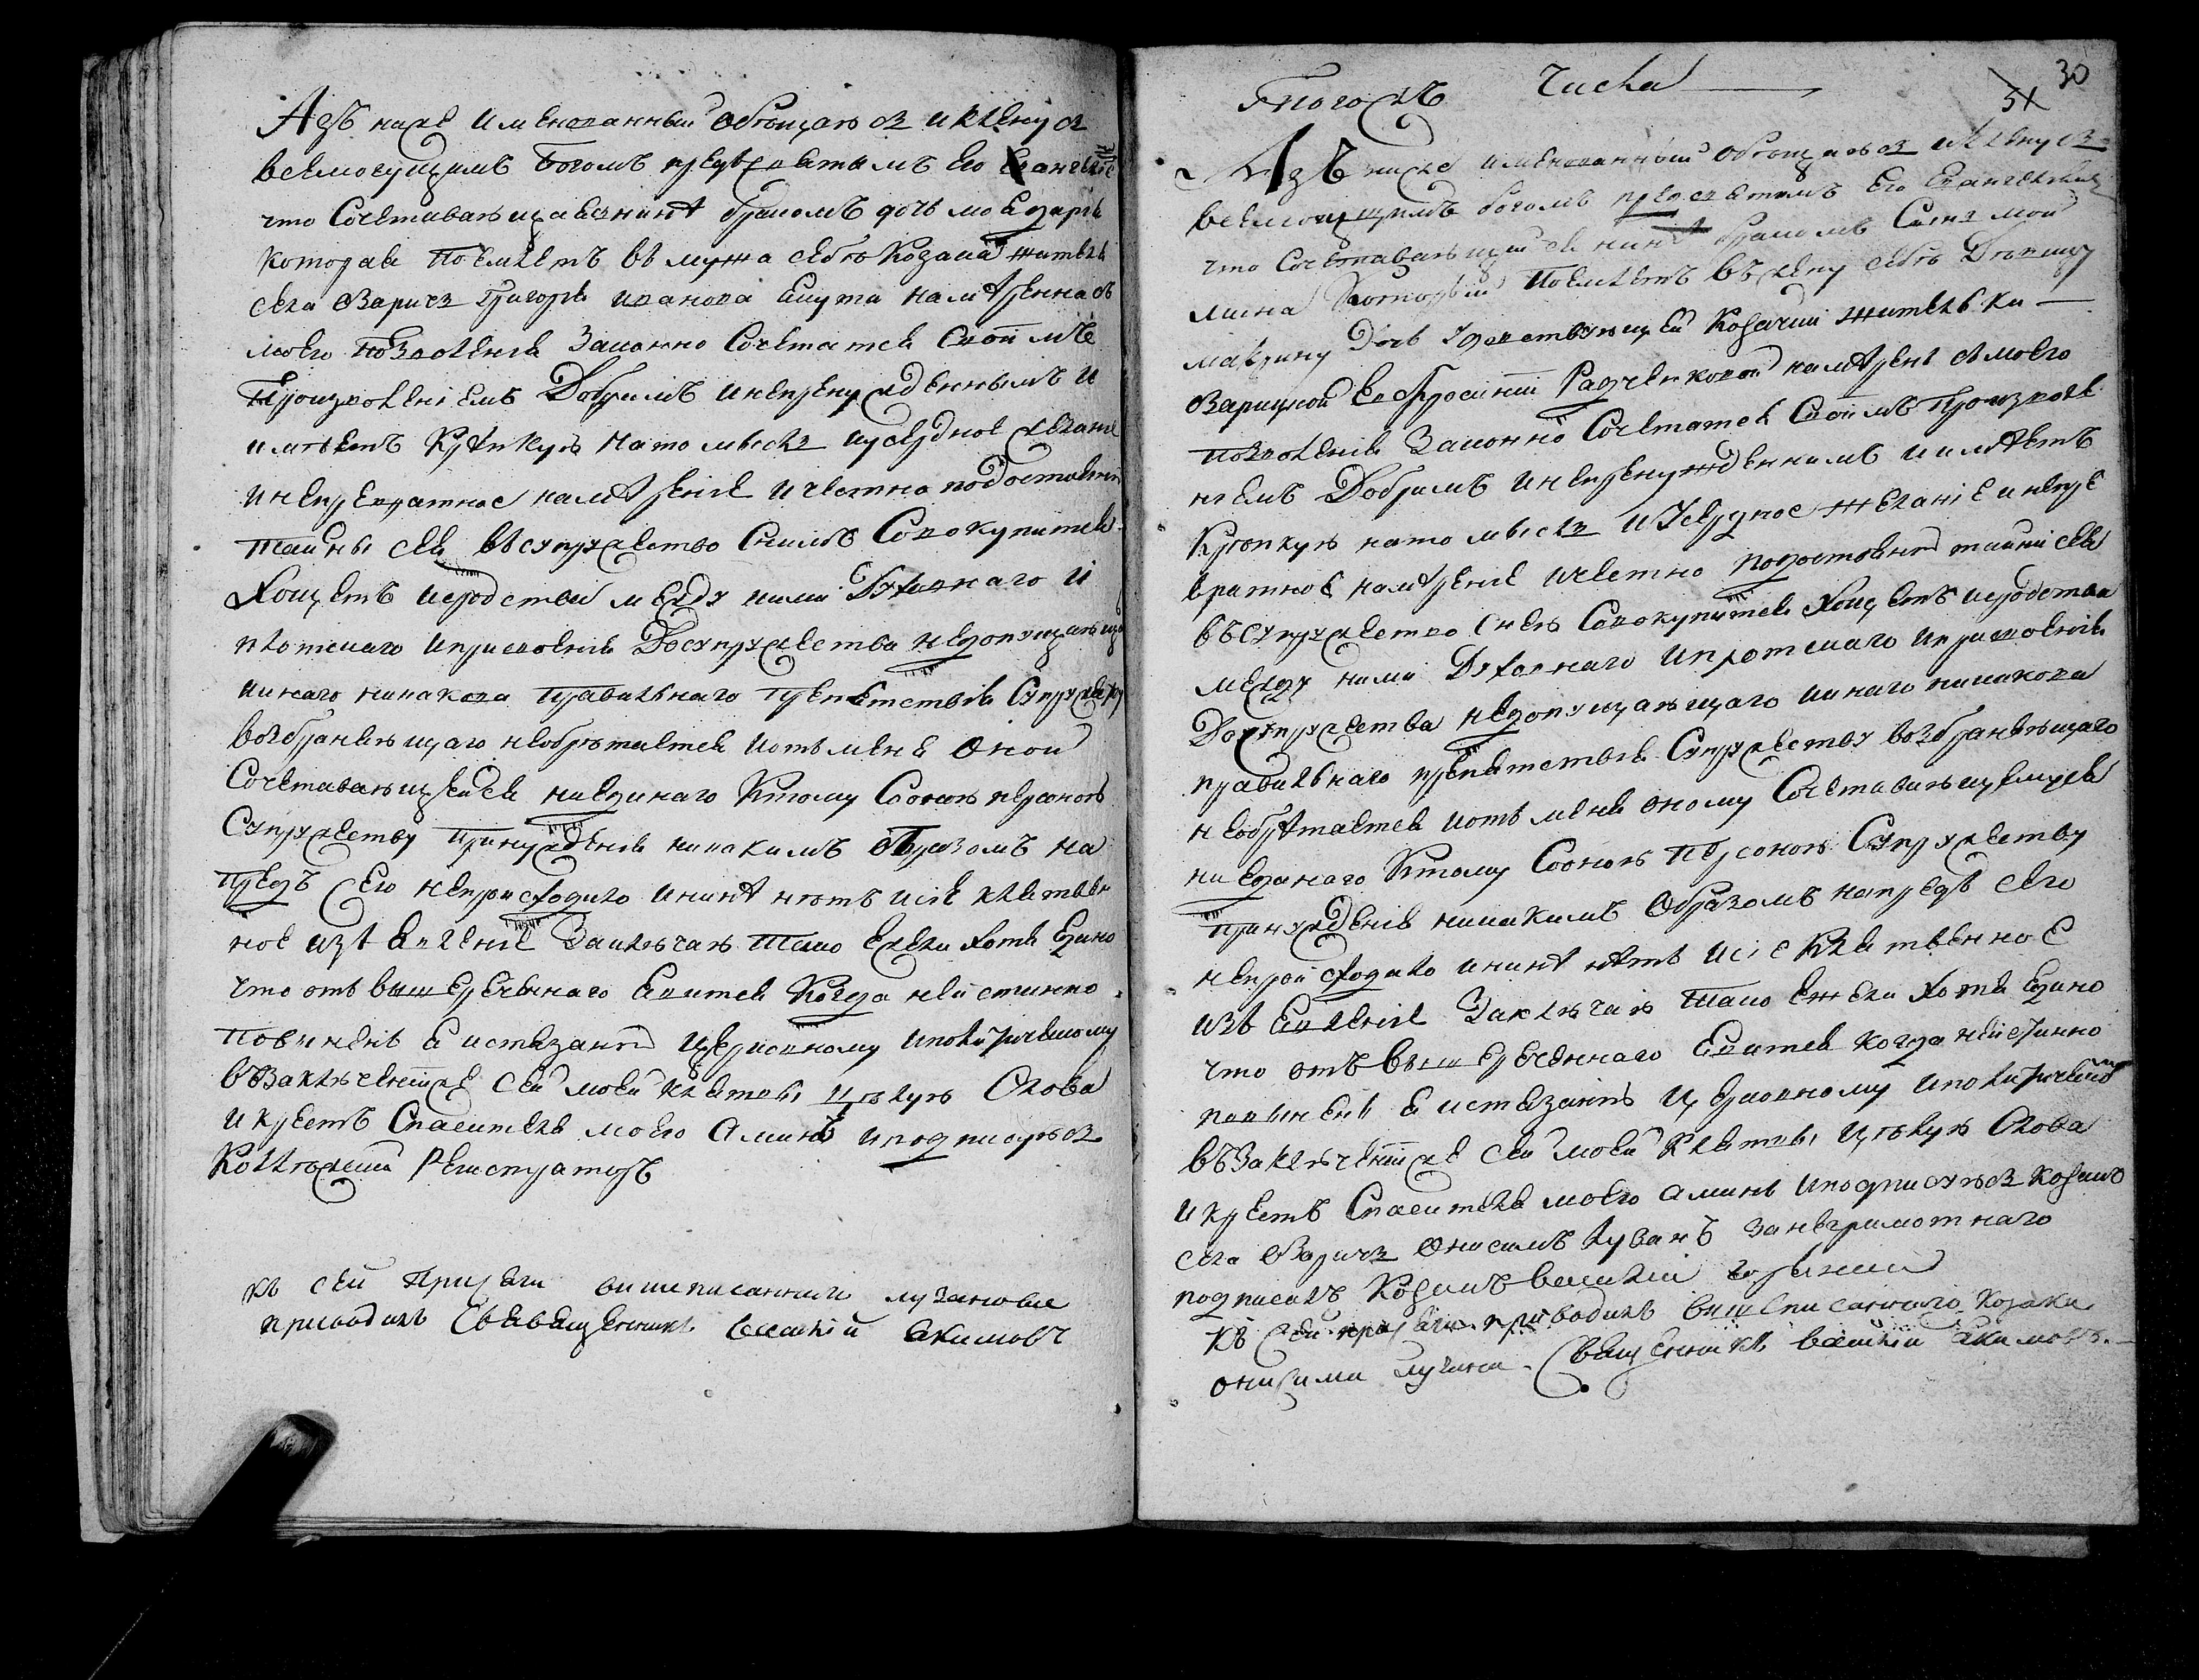 Азъ ниже именованный обѣщаюся и кленуся
всемогущимъ Богомъ предъ святымъ его Евангелие
что сочетавающаясянинѣ бракомъ дочь моя
котораяи поемлетъ въ мужа себѣ козака жителя
села Варичъ Григорія Иванова намѣренна съ
моего позволенія законно сочетатся своимъ
произволеніемъ добримъ и непренужденнымъ и
имѣетъ крѣпкую на то мысль и усердное желание
и непревратное намѣреніе и честно по достоянию
тайны сея въ супружество снимъ совокупится
хощетъ и сродствия между ними духовнаго и
плотскаго и присвоенія до супружества недопущающаго
и инаго никакова правильнаго препятствія супружеству
возбраняющаго необрѣтается и отъ мене оной
сочетавающейся ни единаго ктому сооною персоною
супружеству принужденія никакимъ образомъ на
предъ сего непроисходило и нинѣ нѣтъ и сіе клятвен
ное изъявленіе заключаю тако ежели хотя едино
что отъ вышереченнаго явится когда неистинно
повиненъ я истязанию церковному и политическому
въ заключеніи же сей моей клятвы цѣлую слова
и крестъ Спасителя моего аминь и подписуюся
коллежский регистраторъ
къ сей присяги вишеписанного лузановие
приводилъ священникъ василій акимовъ
30
31
Такогожъ числа
Азъ ниже именованный обѣщаюся и кленуся
всемогущимъ богомъ предсвятымъ его Евангелиемъ
что сочетавающийся нинѣ бракомъ синъ мой
который поемлетъ въ жену себѣ девицу
макрину дочь жителствующей козачки жителъки
Варицкой Ефросиніи Радченковой намѣренъ съ моего
позволенія законно сочетатся своимъ произволе
ниемъ добримъ и непренужденнимъ и имѣетъ
крѣпкую на то мысль и усердное желаніе и непре
вратное намѣреніе и честно по достоянию тайни сея
въ супружество снею совокупится хощетъ и сродства
между ними духовнаго и плотскаго и присвоенія
до супружества недопущающаго и инаго никакова
правильнаго препятствія супружеству возбраняющаго
необрѣтается и отъ мене оному сочетавающемуся
ни единаго ктому сооною персоною супружеству
принужденія никакимъ образомъ напредъ сего
непроисходило и нинѣ нѣтъ и сіе клятвенное
изъявленіе заключаю тако ежели хотя едино
что отъ вышереченнаго явится когда неистинно
повиненъ я истязанію церковному и политическому
въ заключеніи же сей моей клятвы цѣлую слова
и крестъ Спасителя моего аминь и подписуюся козакъ
села Варичъ Онисимъ Лузанъ за неграмотнаго
подписалъ козакъ василій
къ сей присяги приводилъ вишеписанного козака
онисима лузана священникъ василій акимовъ